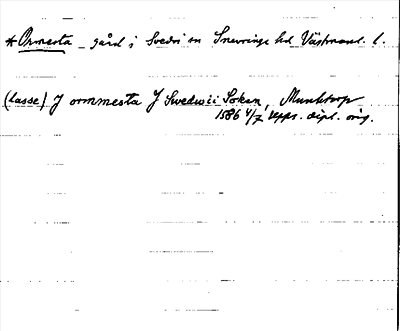 * Ormesta gård i Svedvi sn Snevringe hd Västmanl. l.
(lasse) J ormmesta J Swedwii Soken, Munktorp
1586 4/7 Upps. dipl. orig.